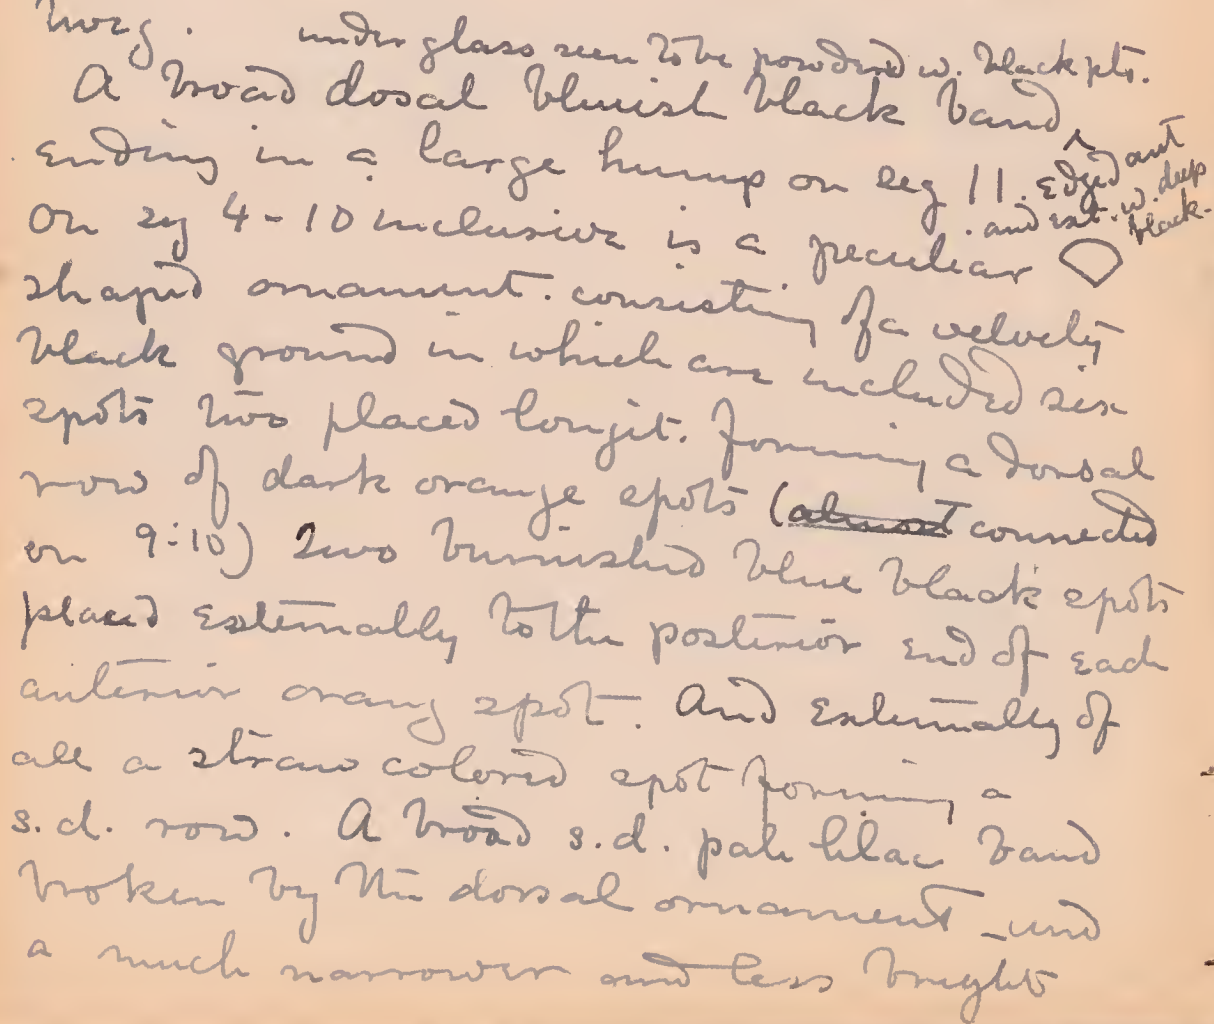 under glass seen to be powdered w. black pts.
A broad dosal bluish black band ^ edged ant and ext. w. deep black-
ending in a large hump on seg 11.
On seg 4-10 inclusive is a peculiar
shaped ornament. consisting of a velvety
black ground in which are included six
spots two placed longit. forming a dorsal
row of dark orange spots (almost connected
on 9-10) Two burnished blue black spots
placed externally to the posterior end of each
anterior orang spot. And externally of
all a straw colored spot forming a
s.d. row. A broad s.d. pale lilac band
broken by the dorsal ornament and
a much narrower and less bright